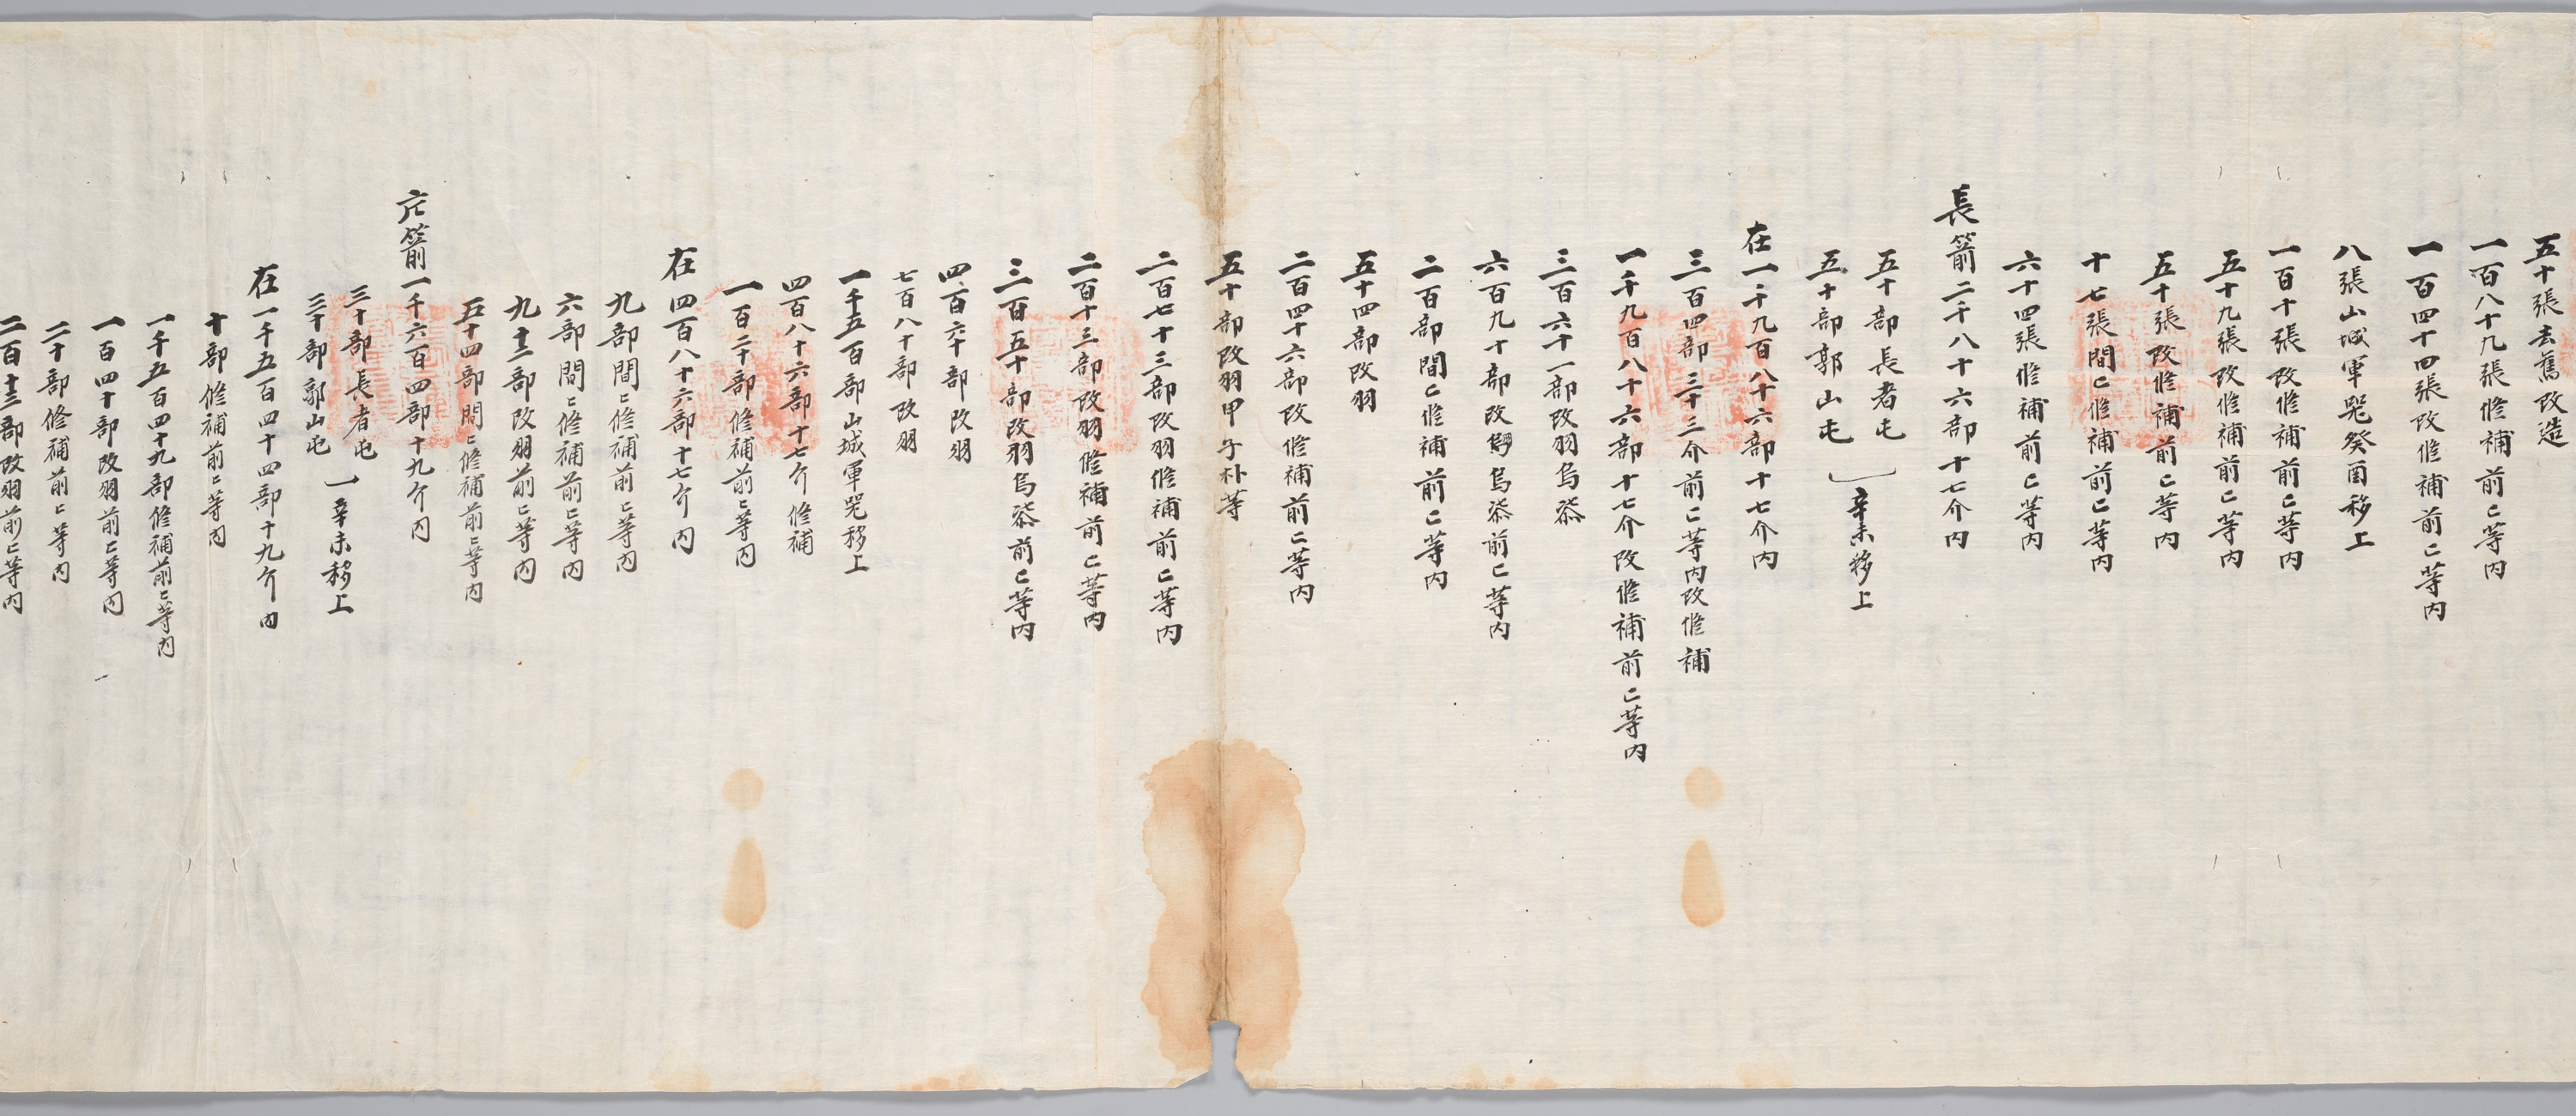 五十張去舊改造
一百八十九張修補前已等内
一百四十四張改修補前已等内
八張山城軍器癸酉移上
一百十張改修補前已等内
五十九張改修補前已等内
五十張改修補前已等内
十七張間已修補前已等内
六十四張修補前已等内
長箭二千八十六部十七介内
五十部長者屯
五十部郭山屯
辛未移上
在一千九百八十六部十七介内
三百四部二十三介前已等内改修補
一千九百八十六部十七介改修補前已等内
三百六十一部改羽烏漆
六百九十部改羽烏漆前已等内
二百部間已修補前已等内
五十四部改羽
二百四十六部改修補前已等内
五十部改羽甲子朴等
二百七十三部改羽修補前已等内
二百十三部改羽修補前已等内
三百五十部改羽烏漆前已等内
四百六十部改羽
七百八十部改羽
一千五百部山城軍器移上
四百八十六部十七介修補
一百二十部修補前已等内
在四百八十六部十七介内
九部間已修補前已等内
六部間已修補前已等内
九十二部改羽前已等内
五十四部間已修補前已等内
片箭一千六百四部十九介内
三十部長者屯
三十部郭山屯
辛未移上
在一千五百四十四部十九介内
十部修補前已等内
一千五百四十九部修補前已等内
一百四十部改羽前已等内
二十部修補前已等内
二百十三部改羽前已等内